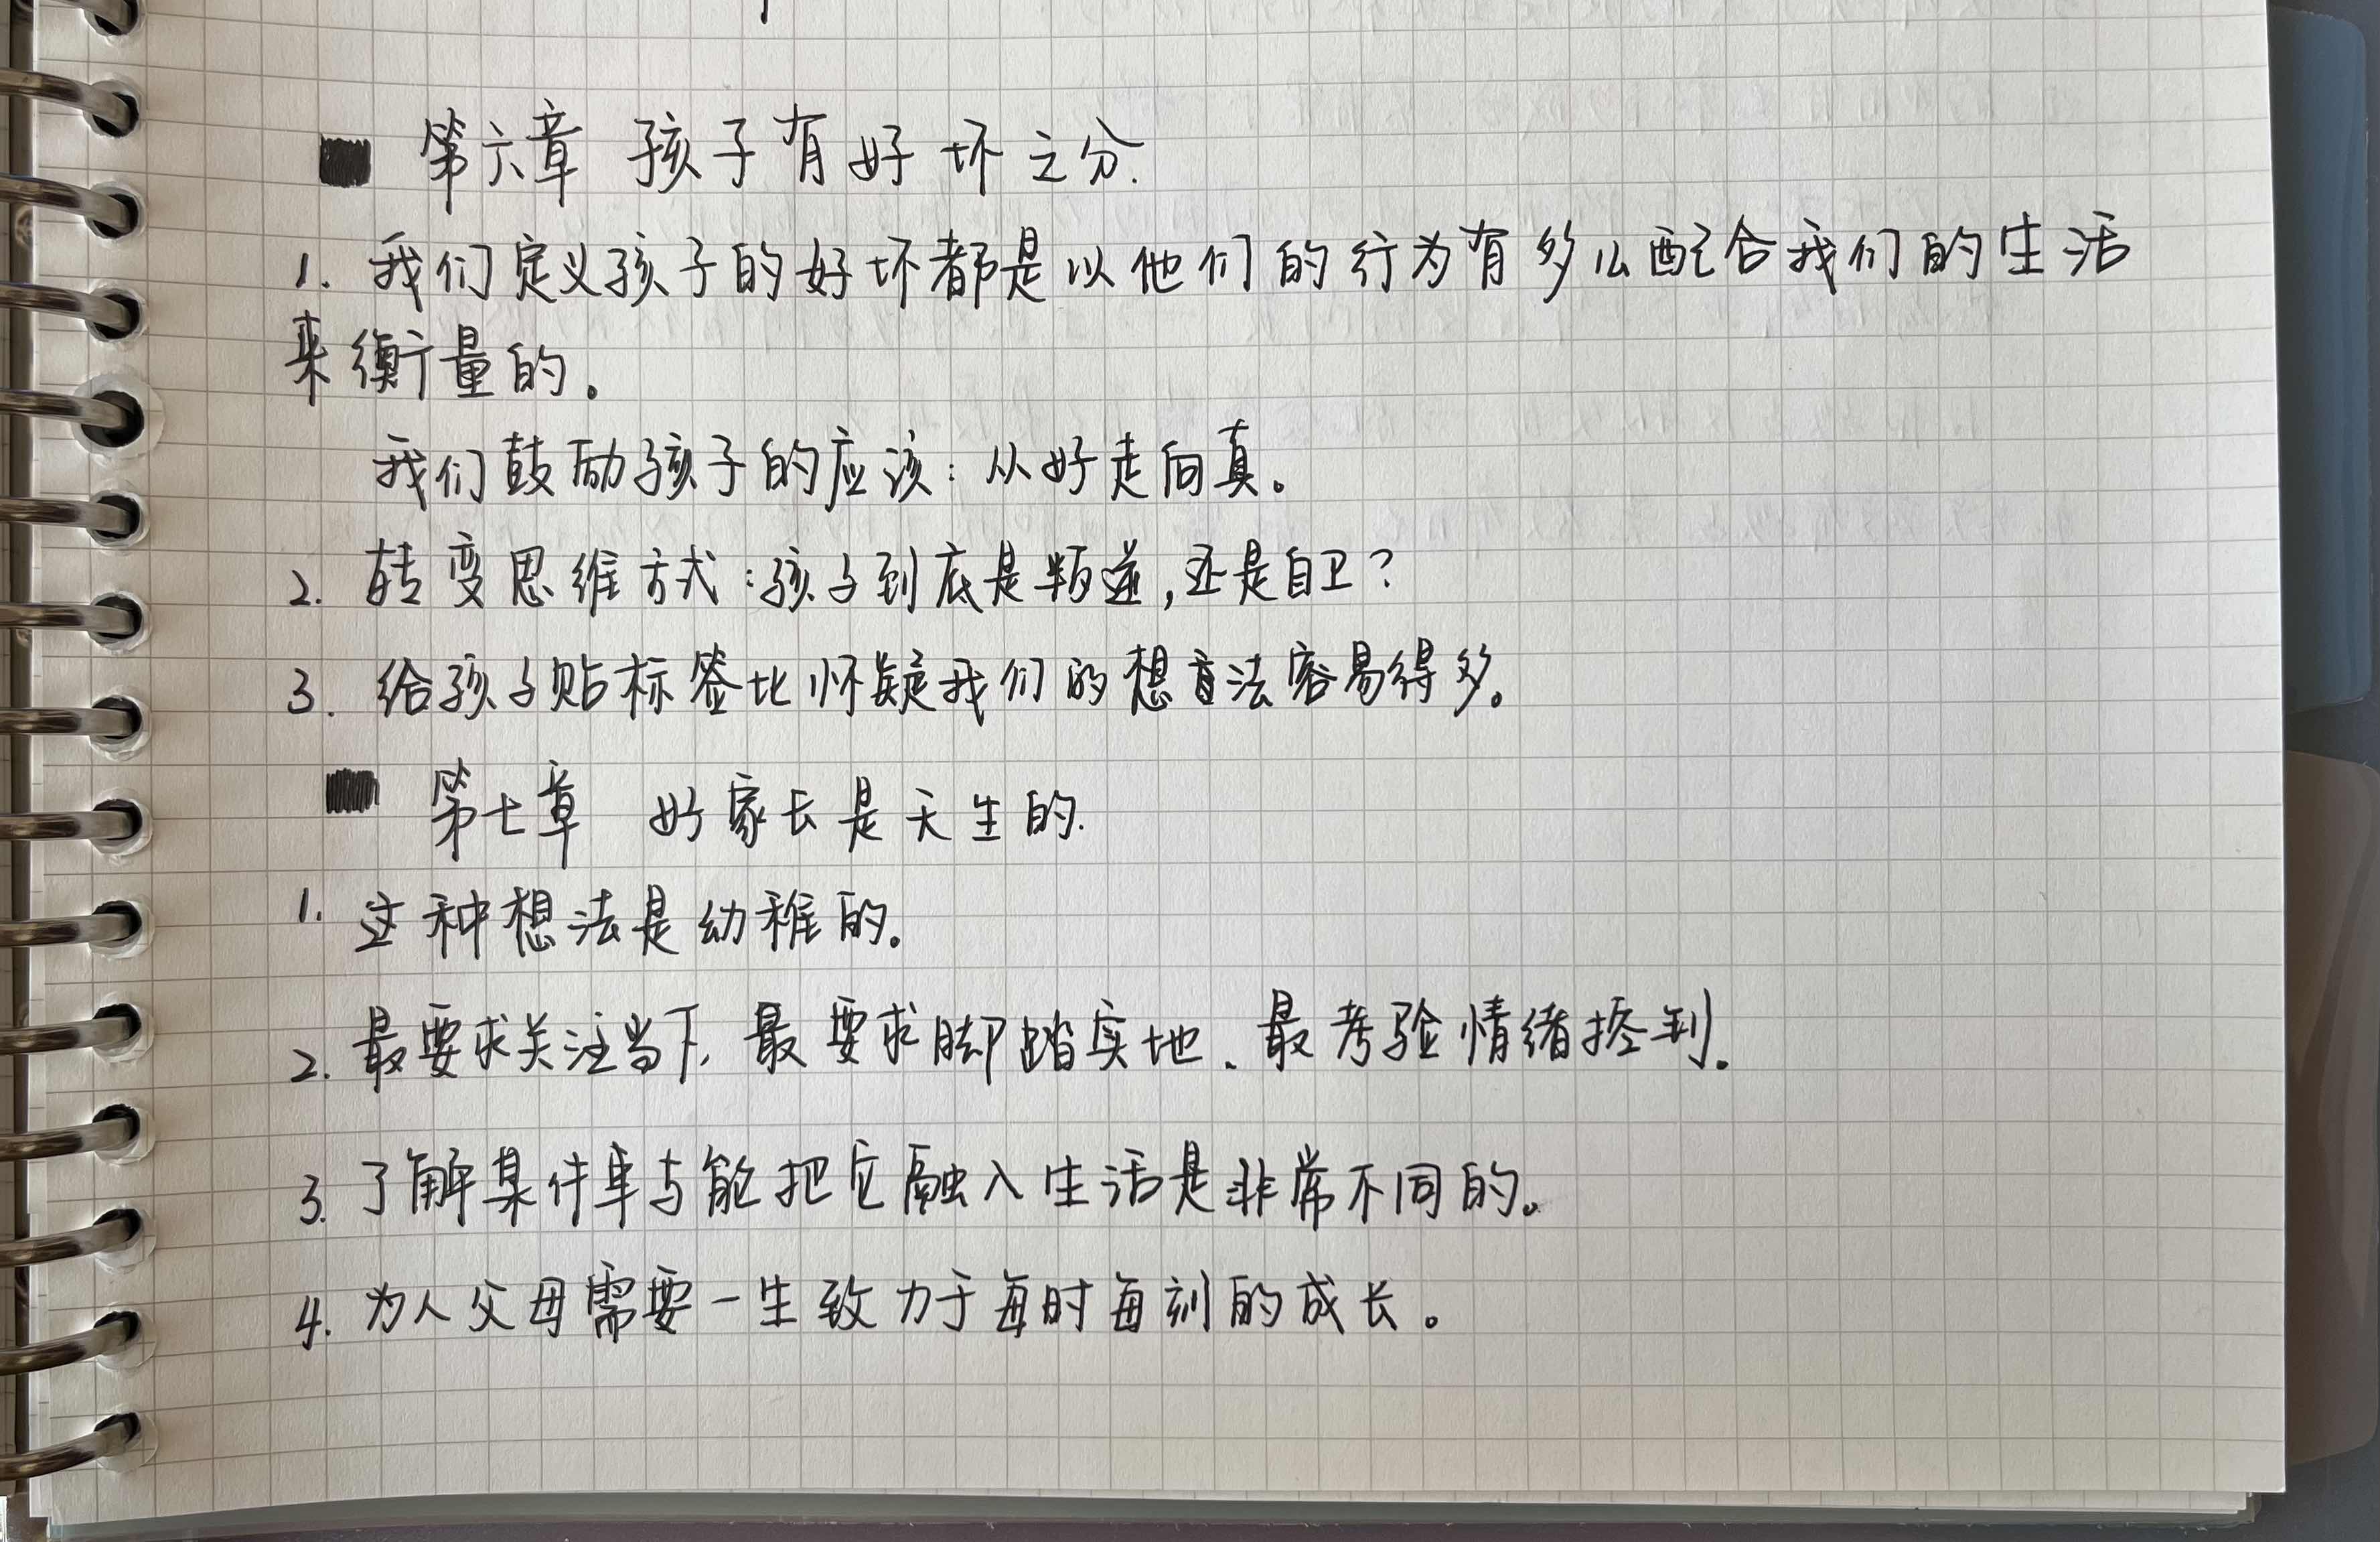 第六章 孩子有好坏之分.
1. 我们定义孩子的好坏都是以他们的行为有多么配合我们的生活
来衡量的。
我们鼓励孩子的应该：从好走向真。
2. 转变思维方式：孩子到底是叛逆,还是自卫？
3. 给孩子贴标签比怀疑我们的想法容易得多。
第七章 好家长是天生的.
1. 这种想法是幼稚的。
2. 最要求关注当下, 最要求脚踏实地、最考验情绪控制。
3. 了解某件事与能把它融入生活是非常不同的。
4. 为人父母需要一生致力于每时每刻的成长。